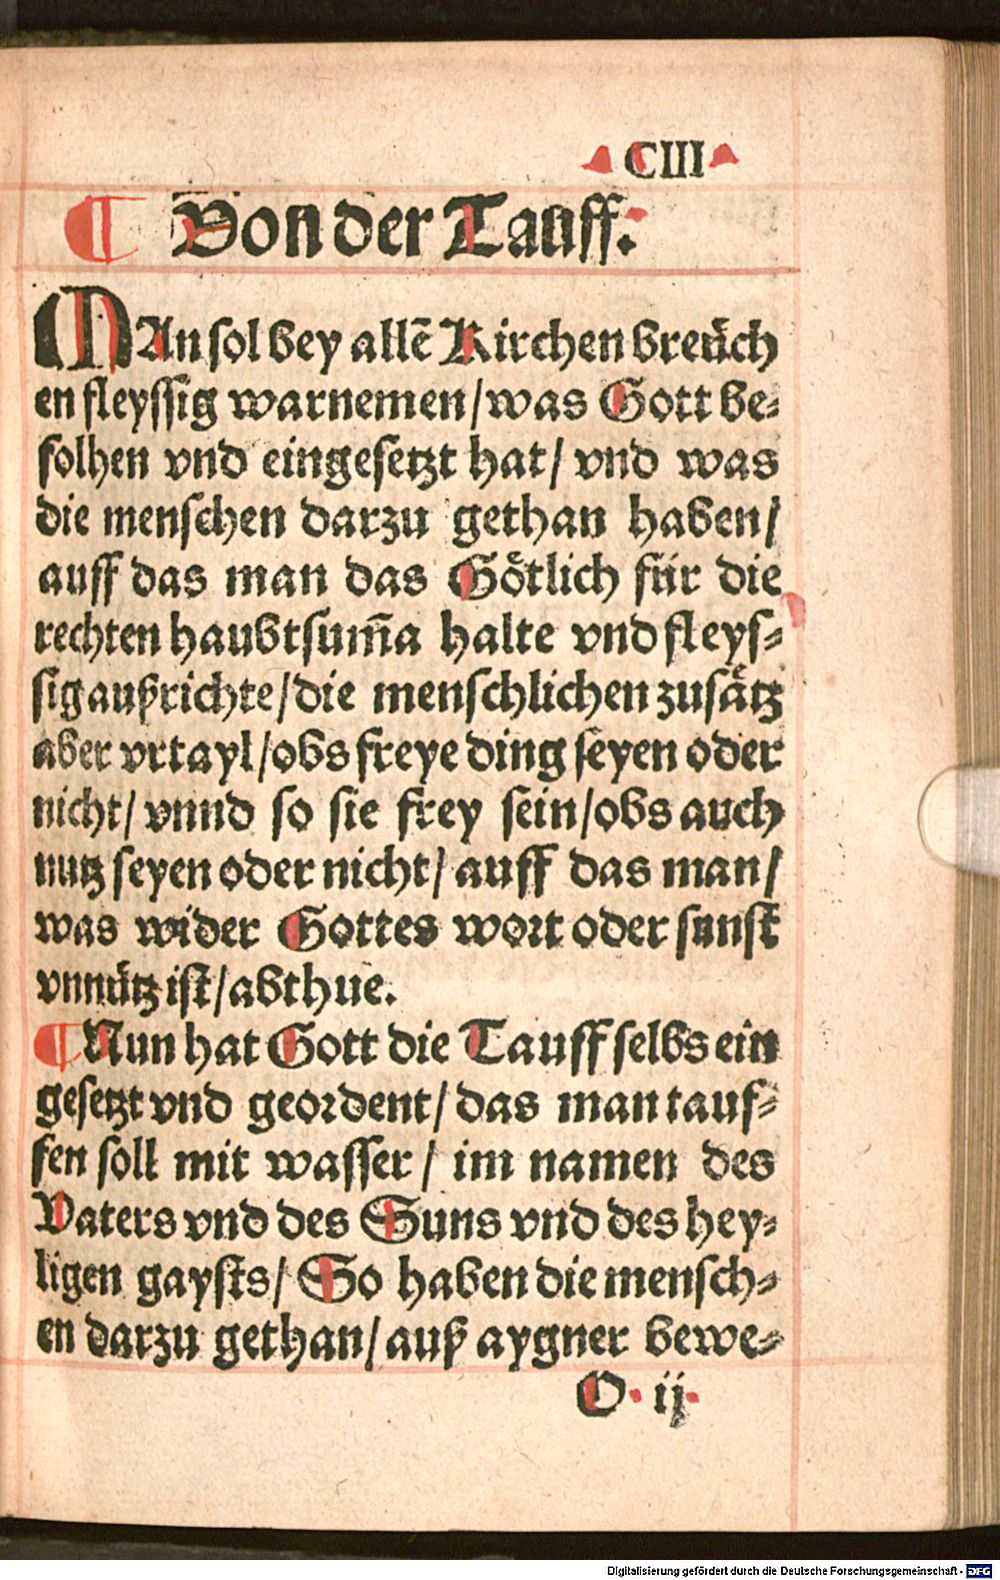 CIII
¶ Von der Tauff.
MAn sol bey allẽ Kirchen breuͤch
en fleyssig warnemen/was Gott be⸗
folhen vnd eingesetzt hat/ vnd was
die menschen darzu gethan haben/
auff das man das Goͤtlich fuͤr die
rechten haubtsum̃a halte vnd fleys⸗
sig außrichte/die menschlichen zusaͤtz
aber vrtayl/obs freye ding seyen oder
nicht/ vnnd so sie frey sein/obs auch
nutz seyen oder nicht/ auff das man/
was wider Gottes wort oder sunst
vnnuͤtz ist/abthue.
¶ Nun hat Gott die Tauff selbs ein
gesetzt vnd geordent/ das man tauf⸗
fen soll mit wasser/ im namen des
Vaters vnd des Suns vnd des hey⸗
ligen gaysts/ So haben die mensch⸗
en darzu gethan/auß aygner bewe⸗
O ij
Digitalisierung gefördert durch die Deutsche Forschungsgemeinschaft - DFG